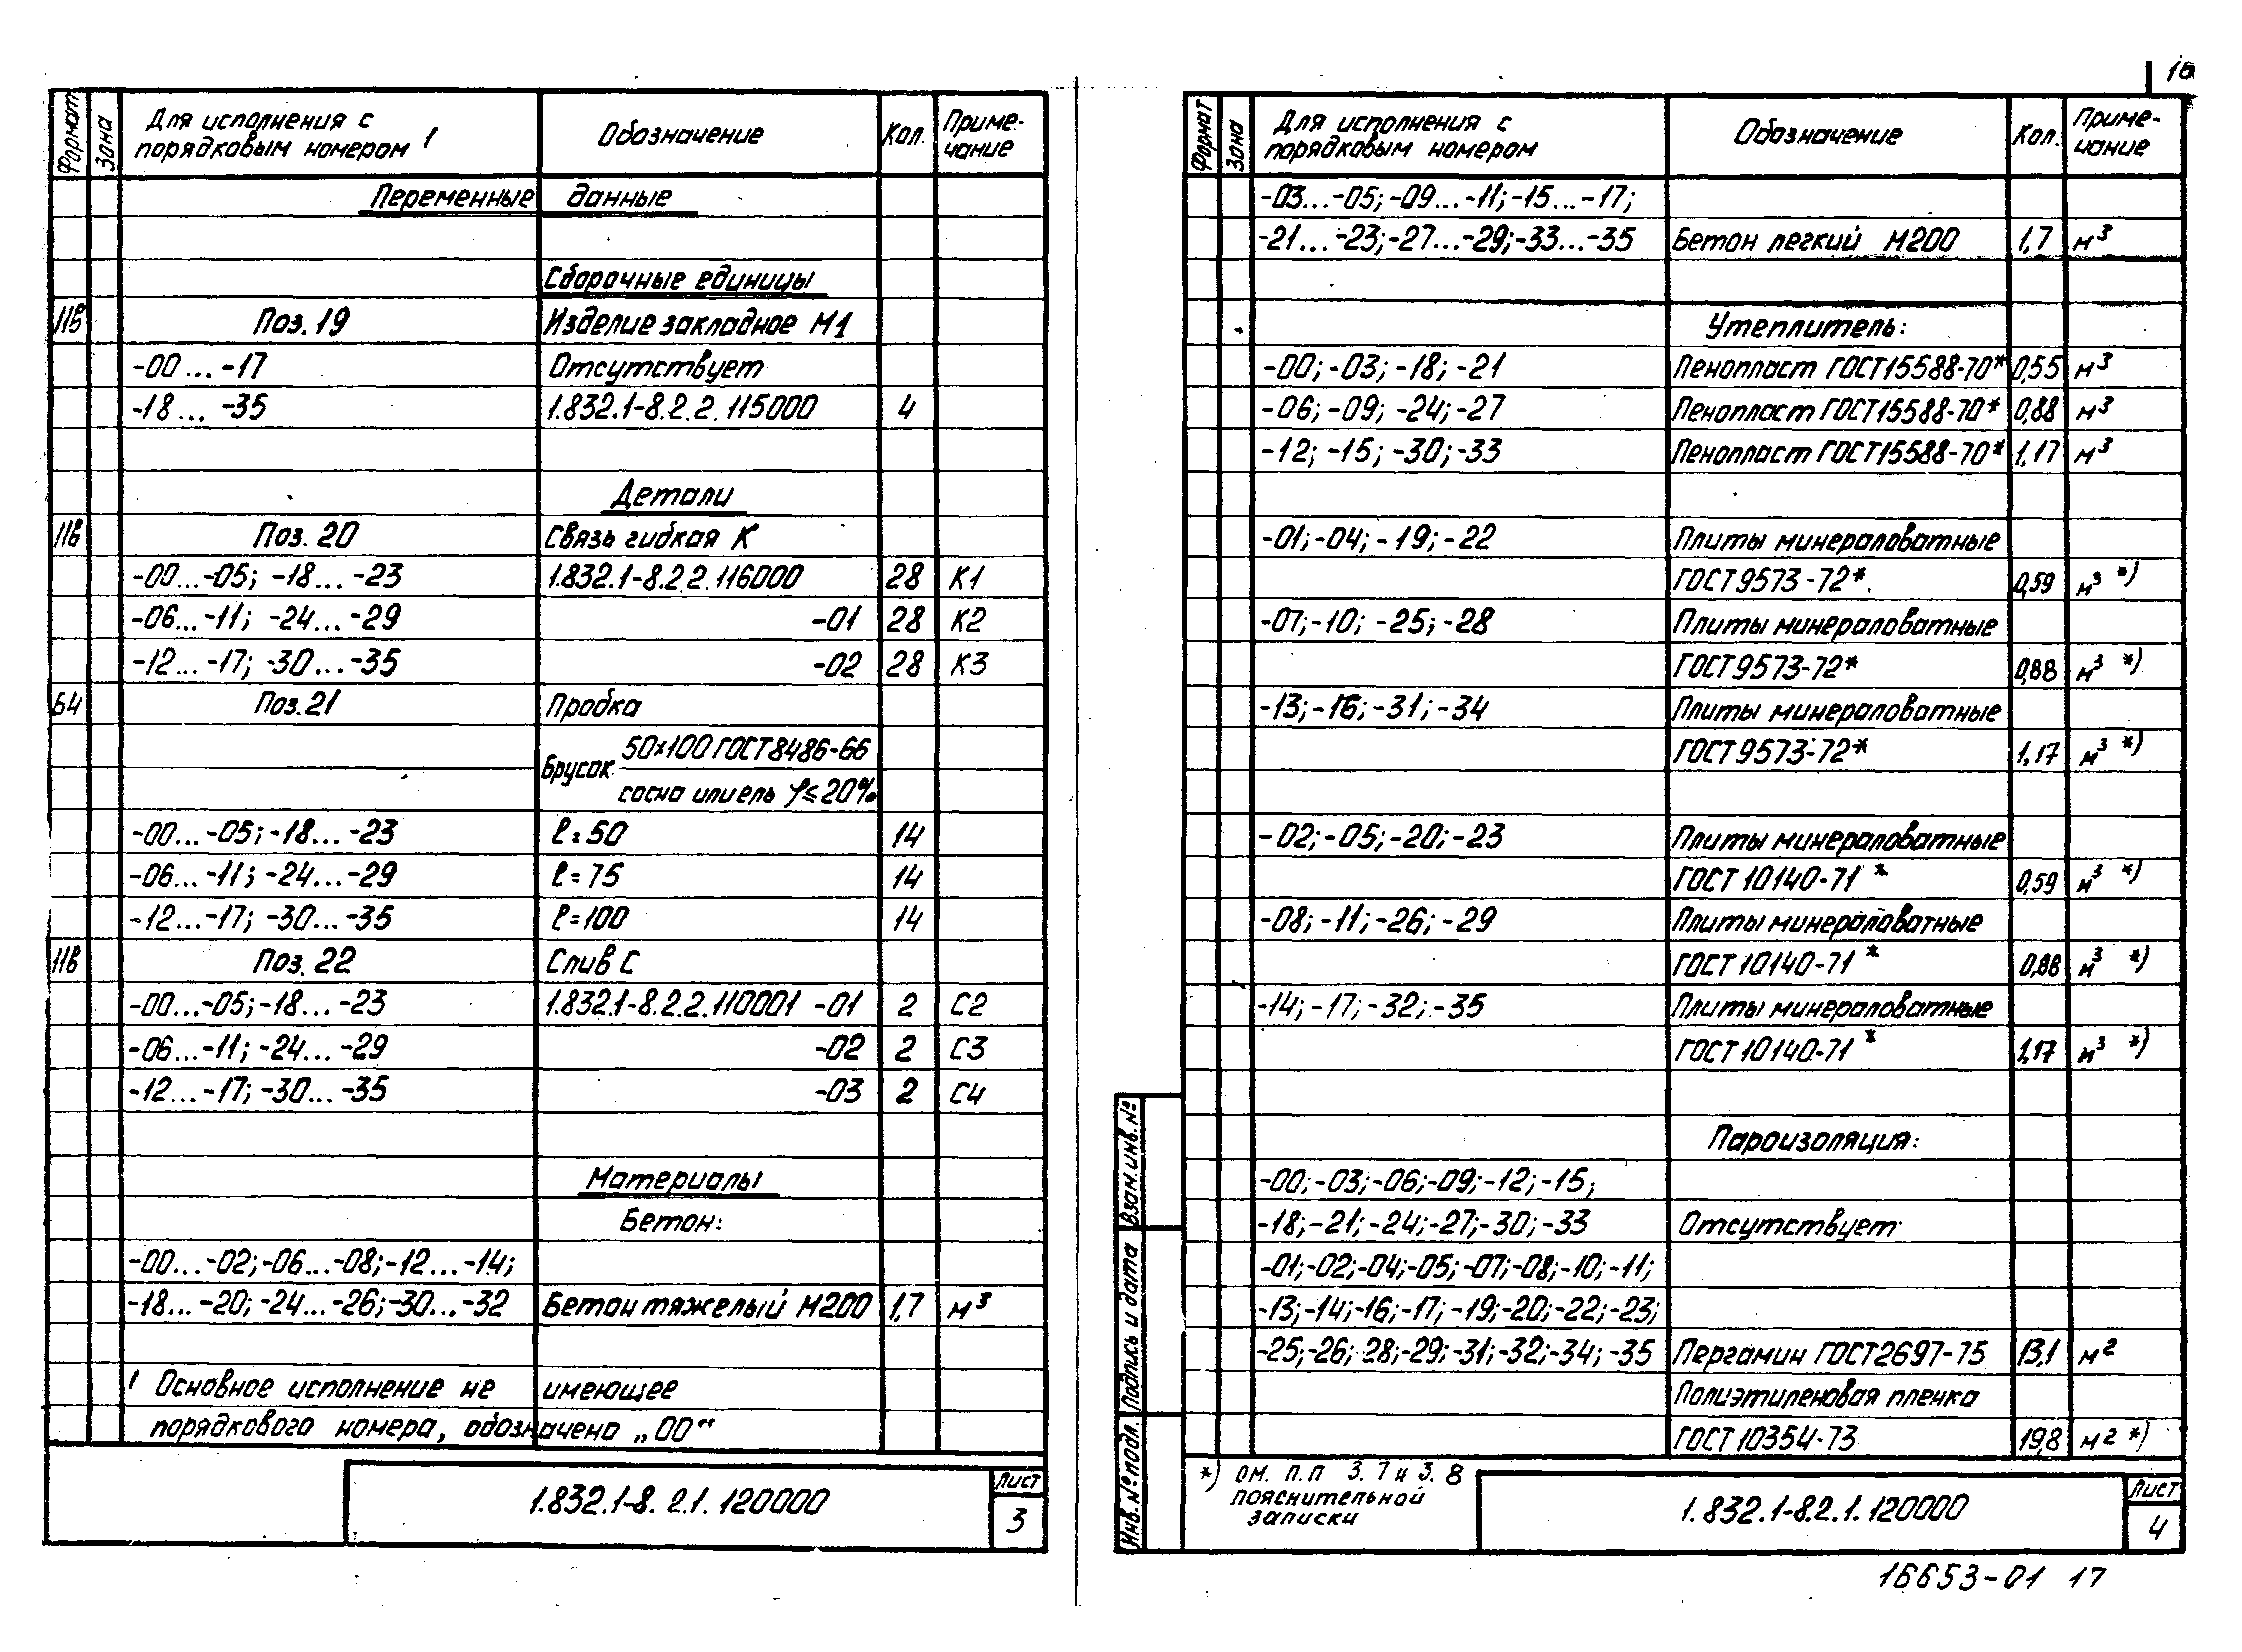 16
Формат Зона Для исполнения с порядковым номером 1 Обозначение Кол. Примечание
Переменные данные
Сборочные единицы
11В Поз. 19 Изделие закладное М1
-00...-17 Отсутствует
-18...-35 1.832.1-8.2.2.115000 4
Детали
11В Поз. 20 Связь гибкая К
-00...-05; -18...-23 1.832.1-8.2.2.116000 28 К1
-06...-11; -24...-29 -01 28 К2
-12...-17; -30...-35 -02 28 К3
БЧ Поз. 21 Пробка
Брусок 50×100 ГОСТ 8486-66
сосна или ель φ≤20%
-00...-05; -18...-23 ℓ=50 14
-06...-11; -24...-29 ℓ=75 14
-12...-17; -30...-35 ℓ=100 14
11В Поз. 22 Слив С
-00...-05; -18...-23 1.832.1-8.2.2.110001 -01 2 С2
-06...-11; -24...-29 -02 2 С3
-12...-17; -30...-35 -03 2 С4
Материалы
Бетон:
-00...-02; -06...-08; -12...-14;
-18...-20; -24...-26; -30...-32 Бетон тяжелый М200 1,7 м³
1 Основное исполнение не имеющее
порядкового номера, обозначено „00“
1.832.1-8.2.1.120000
Лист
3
Формат Зона Для исполнения с порядковым номером Обозначение Кол. Примечание
-03...-05; -09...-11; -15...-17;
-21...-23; -27...-29; -33...-35 Бетон легкий М200 1,7 м³
Утеплитель:
-00; -03; -18; -21 Пенопласт ГОСТ 15588-70* 0,55 м³
-06; -09; -24; -27 Пенопласт ГОСТ 15588-70* 0,88 м³
-12; -15; -30; -33 Пенопласт ГОСТ 15588-70* 1,17 м³
-01; -04; -19; -22 Плиты минераловатные
ГОСТ 9573-72* 0,59 м³ *)
-07; -10; -25; -28 Плиты минераловатные
ГОСТ 9573-72* 0,88 м³ *)
-13; -16; -31; -34 Плиты минераловатные
ГОСТ 9573-72* 1,17 м³ *)
-02; -05; -20; -23 Плиты минераловатные
ГОСТ 10140-71* 0,59 м³ *)
-08; -11; -26; -29 Плиты минераловатные
ГОСТ 10140-71* 0,88 м³ *)
-14; -17; -32; -35 Плиты минераловатные
ГОСТ 10140-71* 1,17 м³ *)
Пароизоляция:
-00; -03; -06; -09; -12; -15;
-18; -21; -24; -27; -30; -33 Отсутствует
-01; -02; -04; -05; -07; -08; -10; -11;
-13; -14; -16; -17; -19; -20; -22; -23;
-25; -26; 28; -29; -31; -32; -34; -35 Пергамин ГОСТ 2697-75 13,1 м²
Полиэтиленовая пленка
ГОСТ 10354-73 19,8 м² *)
*) см. п.п 3.7 и 3.8
пояснительной
записки
1.832.1-8.2.1.120000
Лист
4
Инв. № подл. Подпись и дата Взам. инв. №
16653-01 17